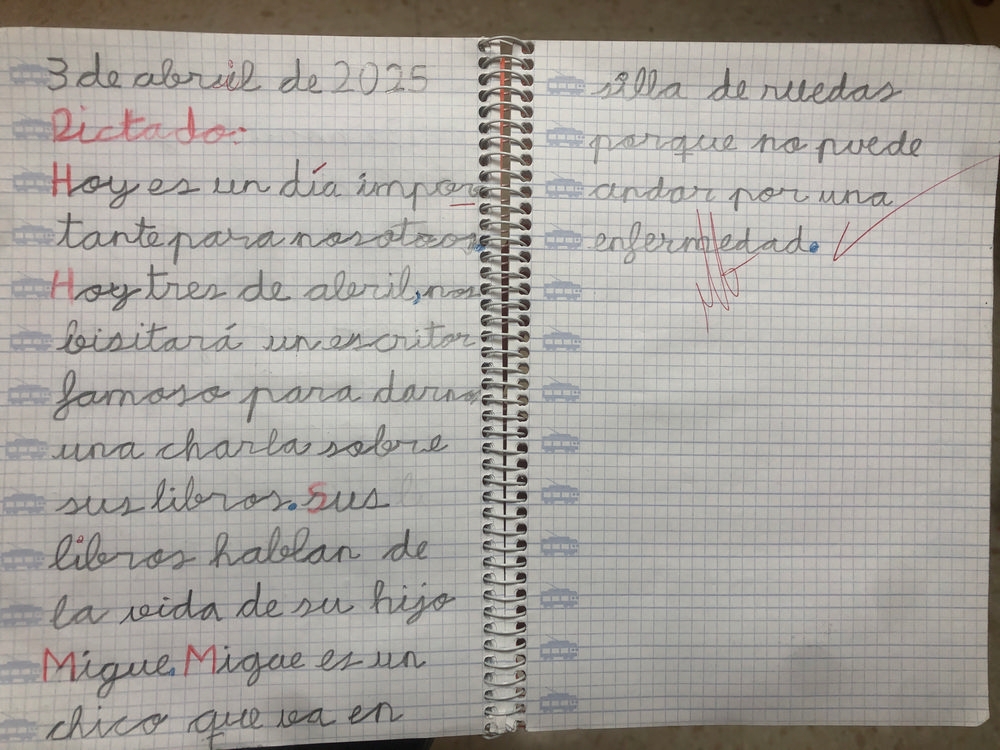 3 de abril de 2025
Dictado:
Hoy es un día impor
tante para nosotros.
Hoy tres de abril, nos
bisitará un escritor
famoso para darnos
una charla sobre
sus libros. Sus
libros hablan de
la vida de su hijo
Migue. Migue es un
chico que va en
silla de ruedas
porque no puede
andar por una
enfermedad.